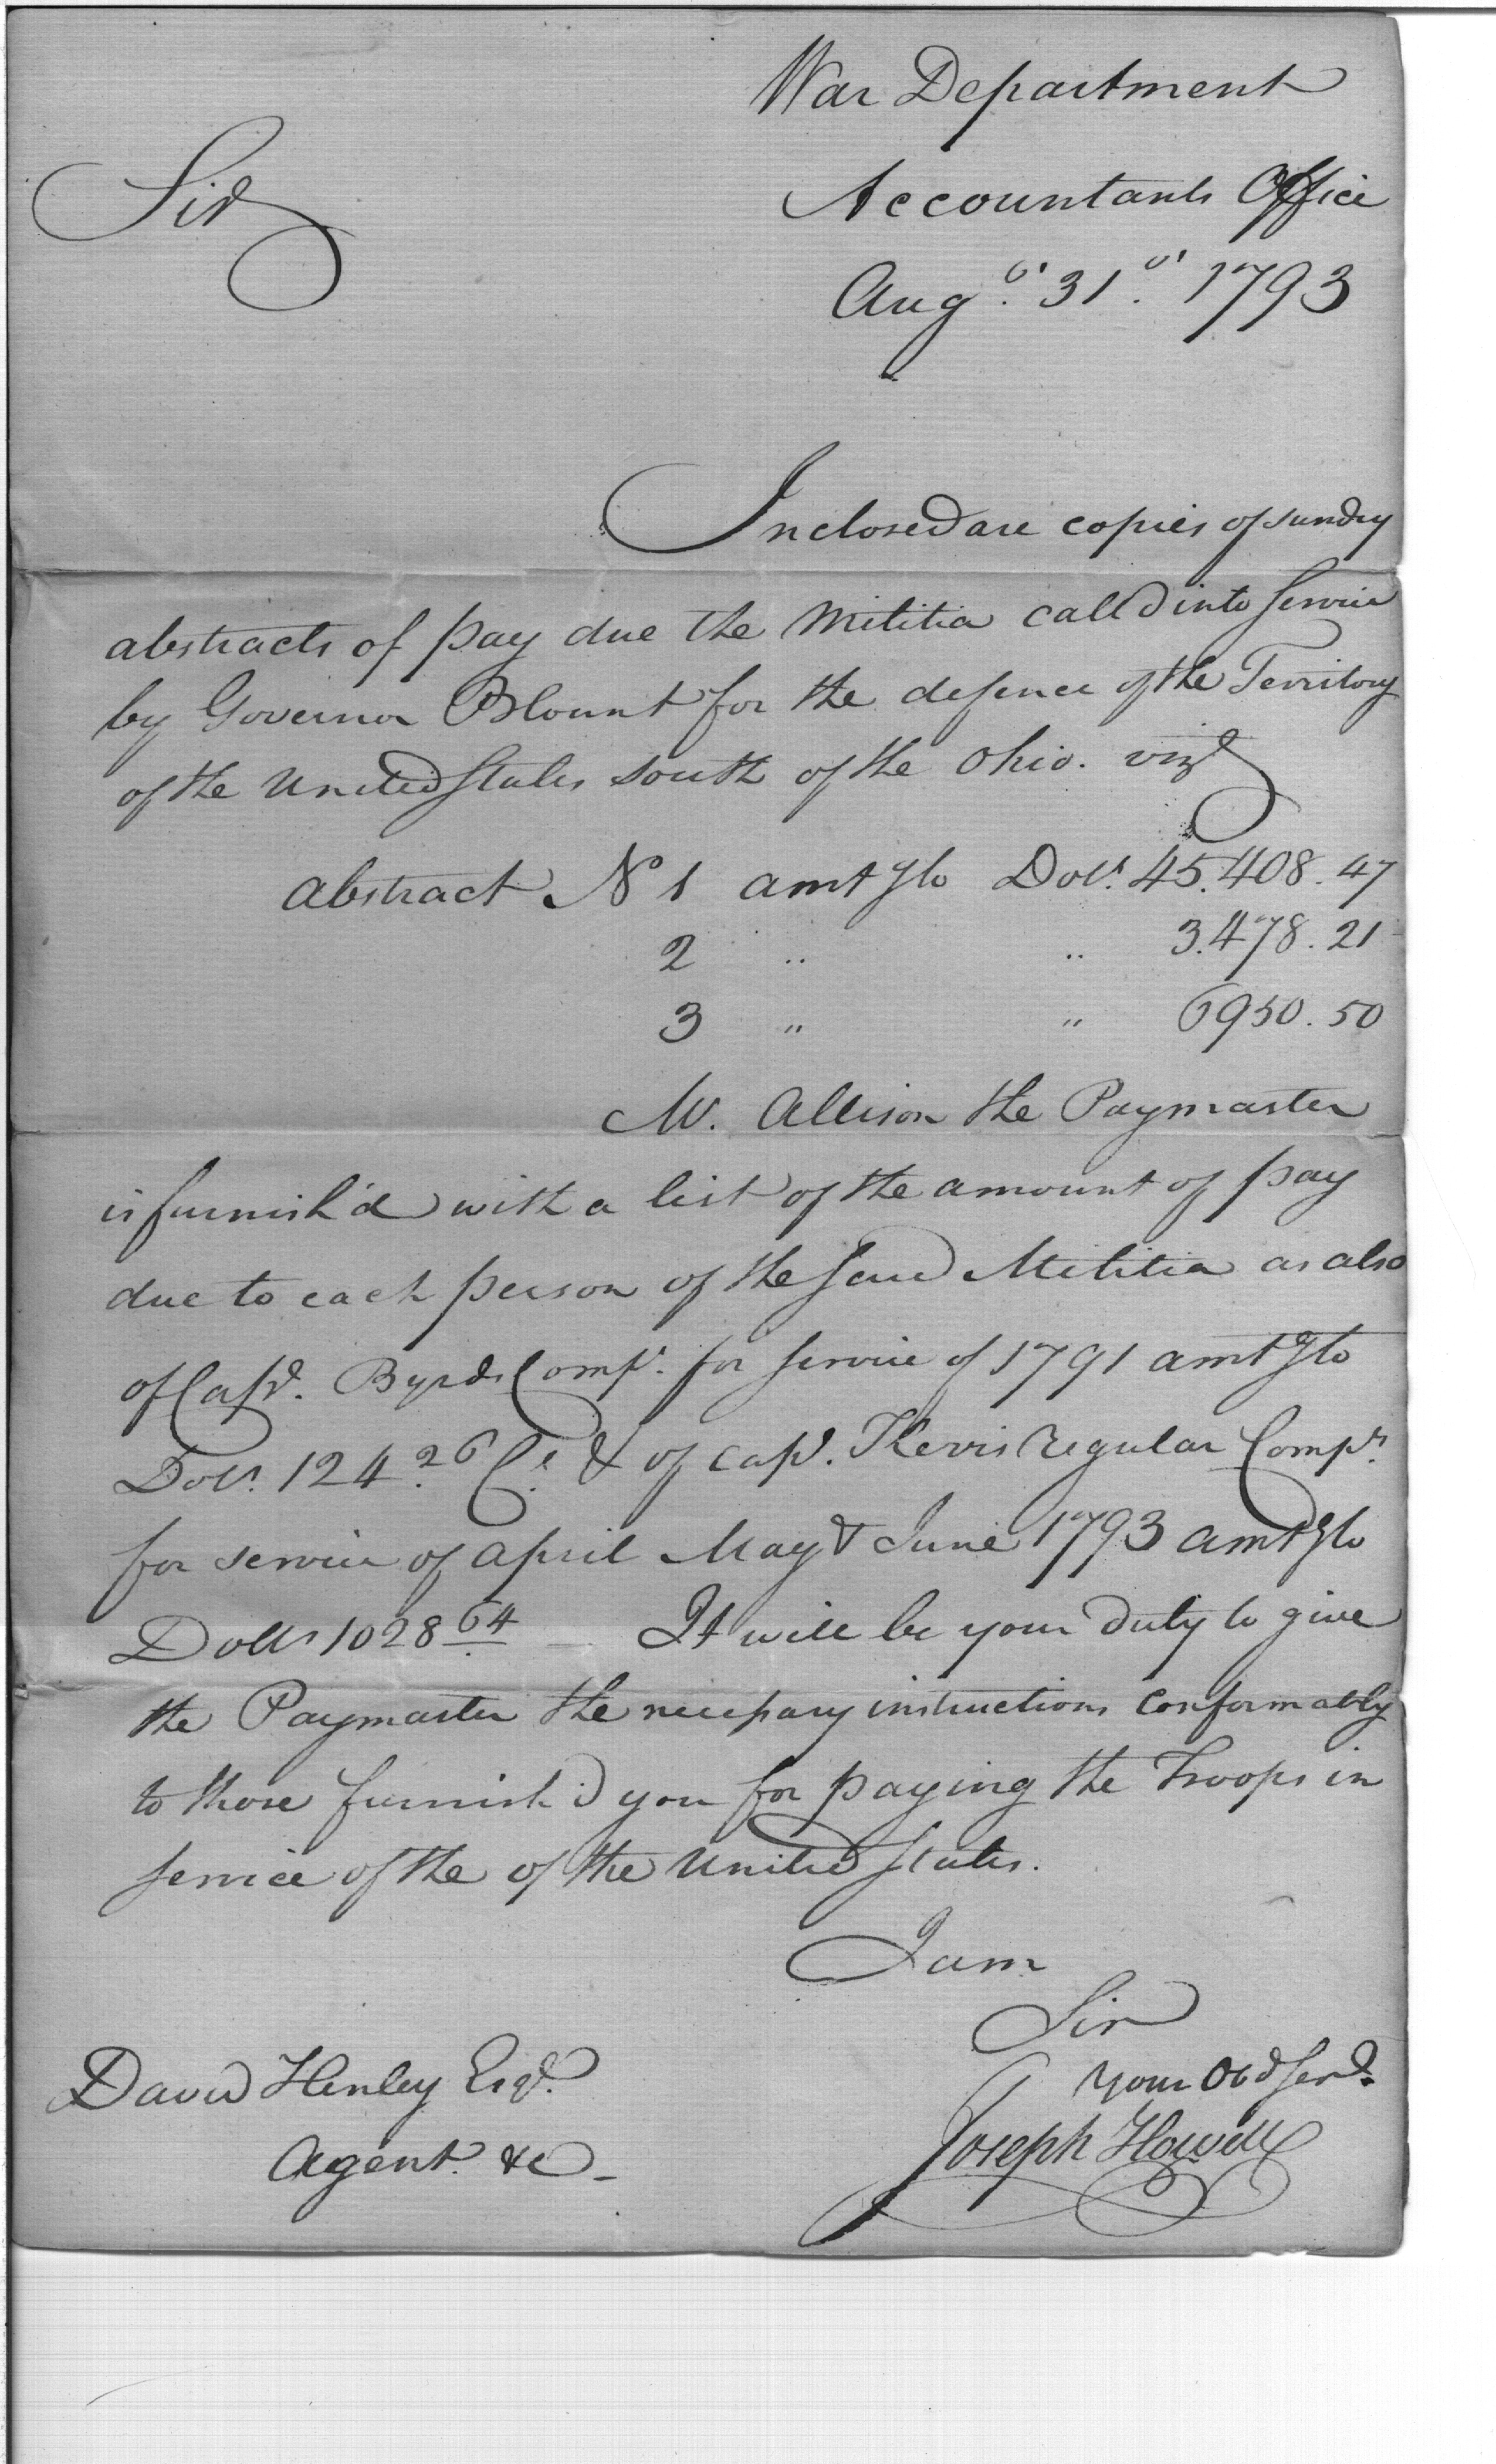 War Department
Accountants Office
Sir
Augt. 31st. 1793
Inclosed are copies of sundry
abstracts of pay due the Militia call'd into Service
by Governor Blount for the defence of the Territory
of the United States south of the Ohio. vizt
Abstract No 1 amtg to Dols. 45.408.47
2 " " 3.478.21
3 " " 6950.50
Mr. Allison the Paymaster
is furnish'd with a list of the amount of pay
due to each person of the said Militia as also
of Capt. Byrds Compy. for service of 1791 amtg to
Dols. 124.26 Cs. & of Capt. Kerrs regular Compy.
for service of April May & June 1793 amtg to
Dolls 1028 64 — It will be your duty to give
the Paymaster the necessary instructions conformably
to those furnish'd you for paying the Troops in
service of the of the United States.
I am
Sir
your Obd Servt.
Joseph Howell
David Henley Esqr.
Agent &c -